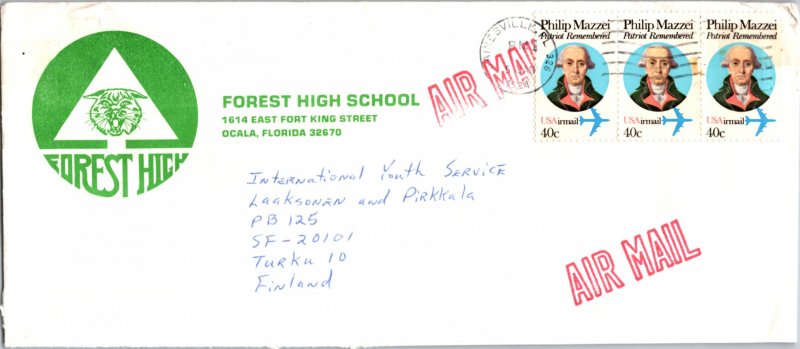 FOREST HIGH
FOREST HIGH SCHOOL
1614 EAST FORT KING STREET
OCALA, FLORIDA 32670
AIR MAIL
Philip Mazzei
Patriot Remembered
USAirmail
40c
Philip Mazzei
Patriot Remembered
USAirmail
40c
Philip Mazzei
Patriot Remembered
USAirmail
40c
International Youth Service
Laaksonen and Pirkkala
PB 125
SF-20101
Turku 10
Finland
AIR MAIL